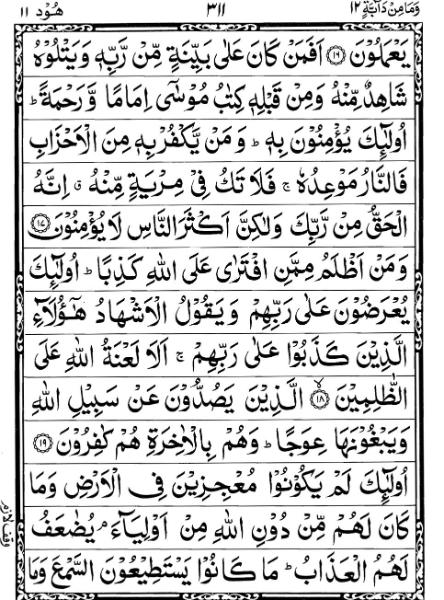 وَمَا مِنْ دَآبَّةٍ ١٢ ٣١١ هُوْد ١١
يَعْمَلُوْنَ ۝١٦ اَفَمَنْ كَانَ عَلٰى بَيِّنَةٍ مِّنْ رَّبِّهٖ وَيَتْلُوْهُ
شَاهِدٌ مِّنْهُ وَمِنْ قَبْلِهٖ كِتٰبُ مُوْسٰٓى اِمَامًا وَّرَحْمَةً ؕ
اُولٰٓئِكَ يُؤْمِنُوْنَ بِهٖ ؕ وَمَنْ يَّكْفُرْ بِهٖ مِنَ الْاَحْزَابِ
فَالنَّارُ مَوْعِدُهٗ ۚ فَلَا تَكُ فِيْ مِرْيَةٍ مِّنْهُ ۗ اِنَّهُ
الْحَقُّ مِنْ رَّبِّكَ وَلٰكِنَّ اَكْثَرَ النَّاسِ لَا يُؤْمِنُوْنَ ۝١٧
وَمَنْ اَظْلَمُ مِمَّنِ افْتَرٰى عَلَى اللّٰهِ كَذِبًا ؕ اُولٰٓئِكَ
يُعْرَضُوْنَ عَلٰى رَبِّهِمْ وَيَقُوْلُ الْاَشْهَادُ هٰٓؤُلَآءِ
الَّذِيْنَ كَذَبُوْا عَلٰى رَبِّهِمْ ۚ اَلَا لَعْنَةُ اللّٰهِ عَلَى
الظّٰلِمِيْنَ ۝١٨ الَّذِيْنَ يَصُدُّوْنَ عَنْ سَبِيْلِ اللّٰهِ
وَيَبْغُوْنَهَا عِوَجًا ؕ وَهُمْ بِالْاٰخِرَةِ هُمْ كٰفِرُوْنَ ۝١٩
اُولٰٓئِكَ لَمْ يَكُوْنُوْا مُعْجِزِيْنَ فِى الْاَرْضِ وَمَا
كَانَ لَهُمْ مِّنْ دُوْنِ اللّٰهِ مِنْ اَوْلِيَآءَ ۘ يُضٰعَفُ
لَهُمُ الْعَذَابُ ؕ مَا كَانُوْا يَسْتَطِيْعُوْنَ السَّمْعَ وَمَا
وقف لازم